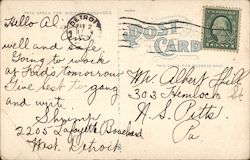 THIS SPACE FOR WRITING MESSAGES
DETROIT
Hello Al:
POST CARD
well and safe
Going to work
at Fords tomorrow
Give best to gang
and write
Shrimp
2205 Lafayette Boulevard
West Detroit
Mr Albert
303 Hemlock St
N. S. Pitts.
Pa.